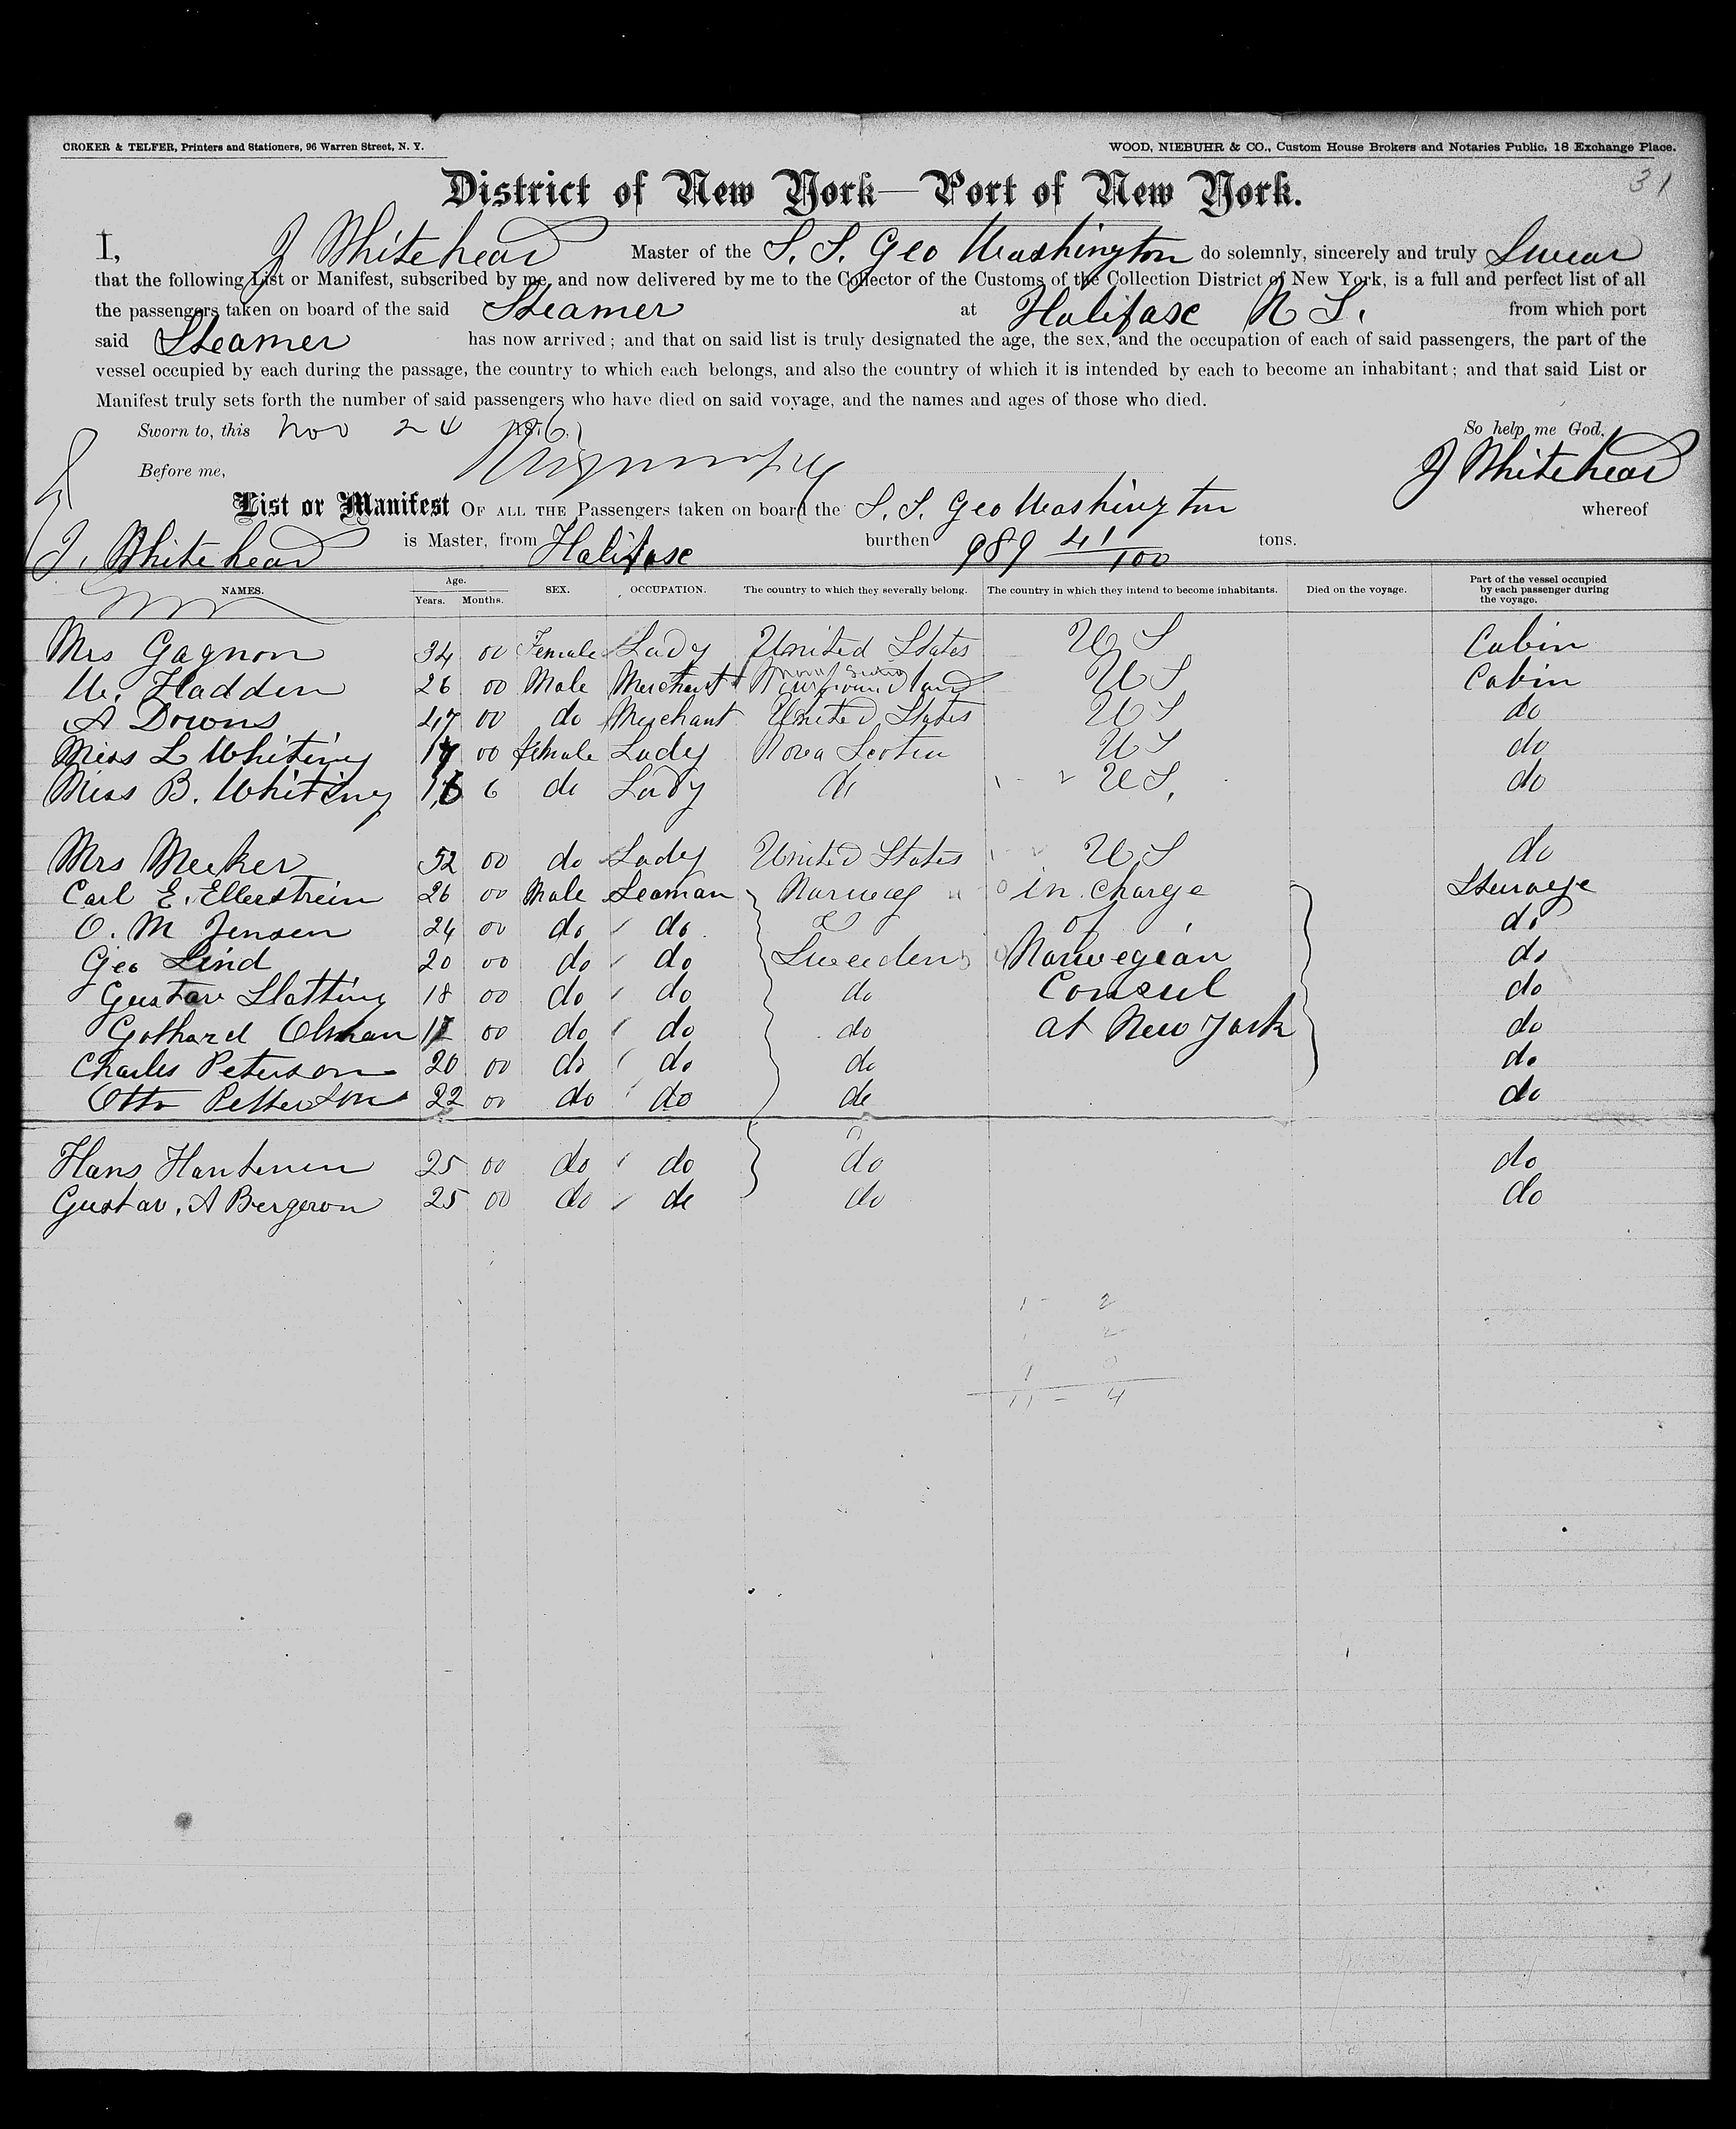 CROKER & TELFER, Printers and Stationers, 96 Warren Street, N. Y. WOOD, NIEBUHR & CO., Custom House Brokers and Notaries Public, 18 Exchange Place.
31
District of New York—Port of New York.
I, J Whitehead Master of the S. S. Geo Washington do solemnly, sincerely and truly Swear
that the following List or Manifest, subscribed by me, and now delivered by me to the Collector of the Customs of the Collection District of New York, is a full and perfect list of all
the passengers taken on board of the said Steamer at Halifax N S. from which port
said Steamer has now arrived; and that on said list is truly designated the age, the sex, and the occupation of each of said passengers, the part of the
vessel occupied by each during the passage, the country to which each belongs, and also the country of which it is intended by each to become an inhabitant; and that said List or
Manifest truly sets forth the number of said passengers who have died on said voyage, and the names and ages of those who died.
Sworn to, this Nov 24 So help me God,
Before me, J Whitehead
List or Manifest OF ALL THE Passengers taken on board the S. S. Geo Washington whereof
J. Whitehead is Master, from Halifax burthen 989 41/100 tons.
NAMES. Age. Years. Months. SEX. OCCUPATION. The country to which they severally belong. The country in which they intend to become inhabitants. Died on the voyage. Part of the vessel occupied by each passenger during the voyage.
Mrs Gagnon 34 00 Female Lady United States U S Cabin
W. Hadden 26 00 Male Merchant Newfoundland U S Cabin
A Downs 47 00 do Merchant United States U S do
Miss L Whiting 17 00 female Lady Nova Scotia U S do
Miss B. Whiting 16 6 do Lady do U S. do
Mrs Meeker 52 00 do Lady United States U S do
Carl E. Ellerstrein 26 00 Male Seaman Norway in charge Steerage
O. M Jensen 24 00 do do of do
Geo Lind 20 00 do do Sweden Norwegian do
Gustav Slatting 18 00 do do do Consul do
Gothard Ohman 17 00 do do do at New York do
Charles Peterson 20 00 do do do do
Otto Petterson 22 00 do do do do
Hans 25 00 do do do do
Gustav. A Bergeron 25 00 do do do do
1 - 2
1
11 - 4